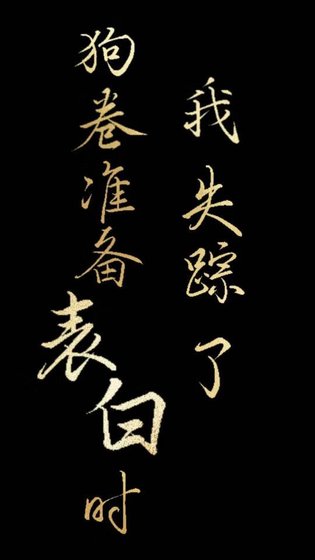 狗卷准备表白时
我失踪了